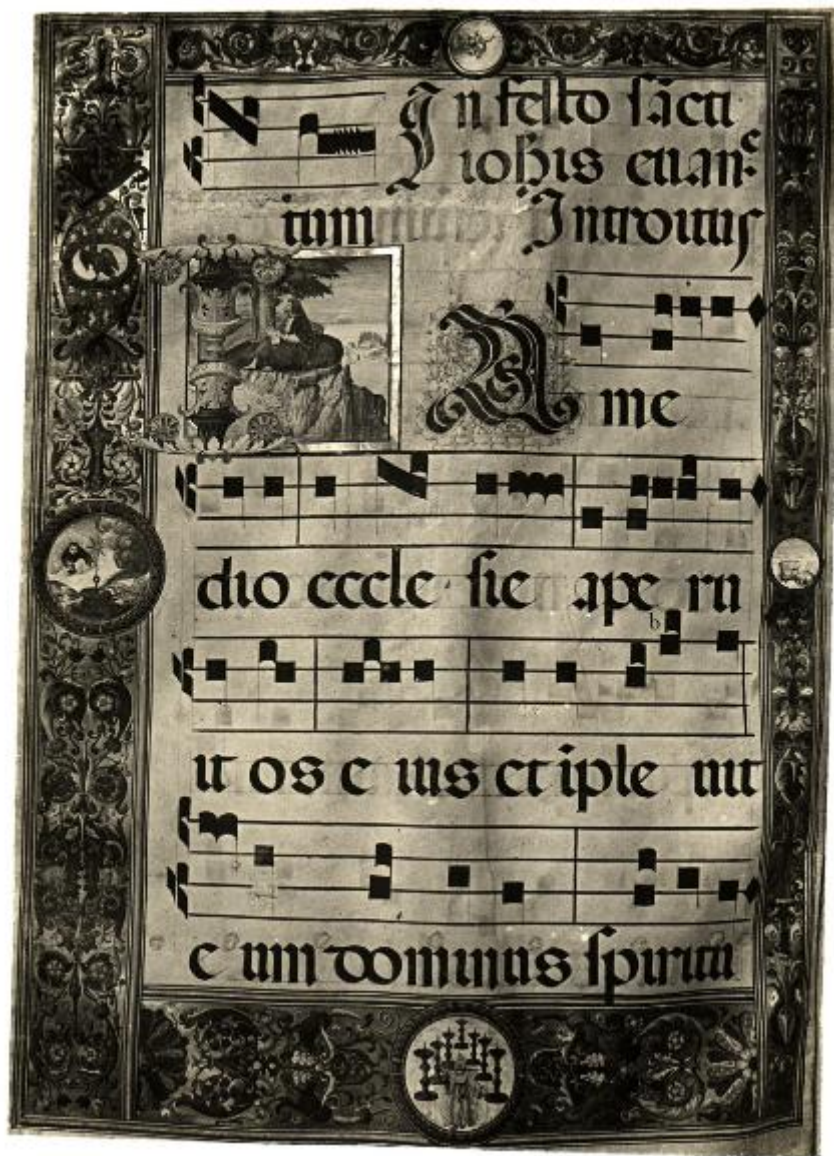 In festo sācti
iohis euan
itum Introitus
IN me
dio eccle sie ape ru
it os e ius et iple uit
e um dominus spiritu